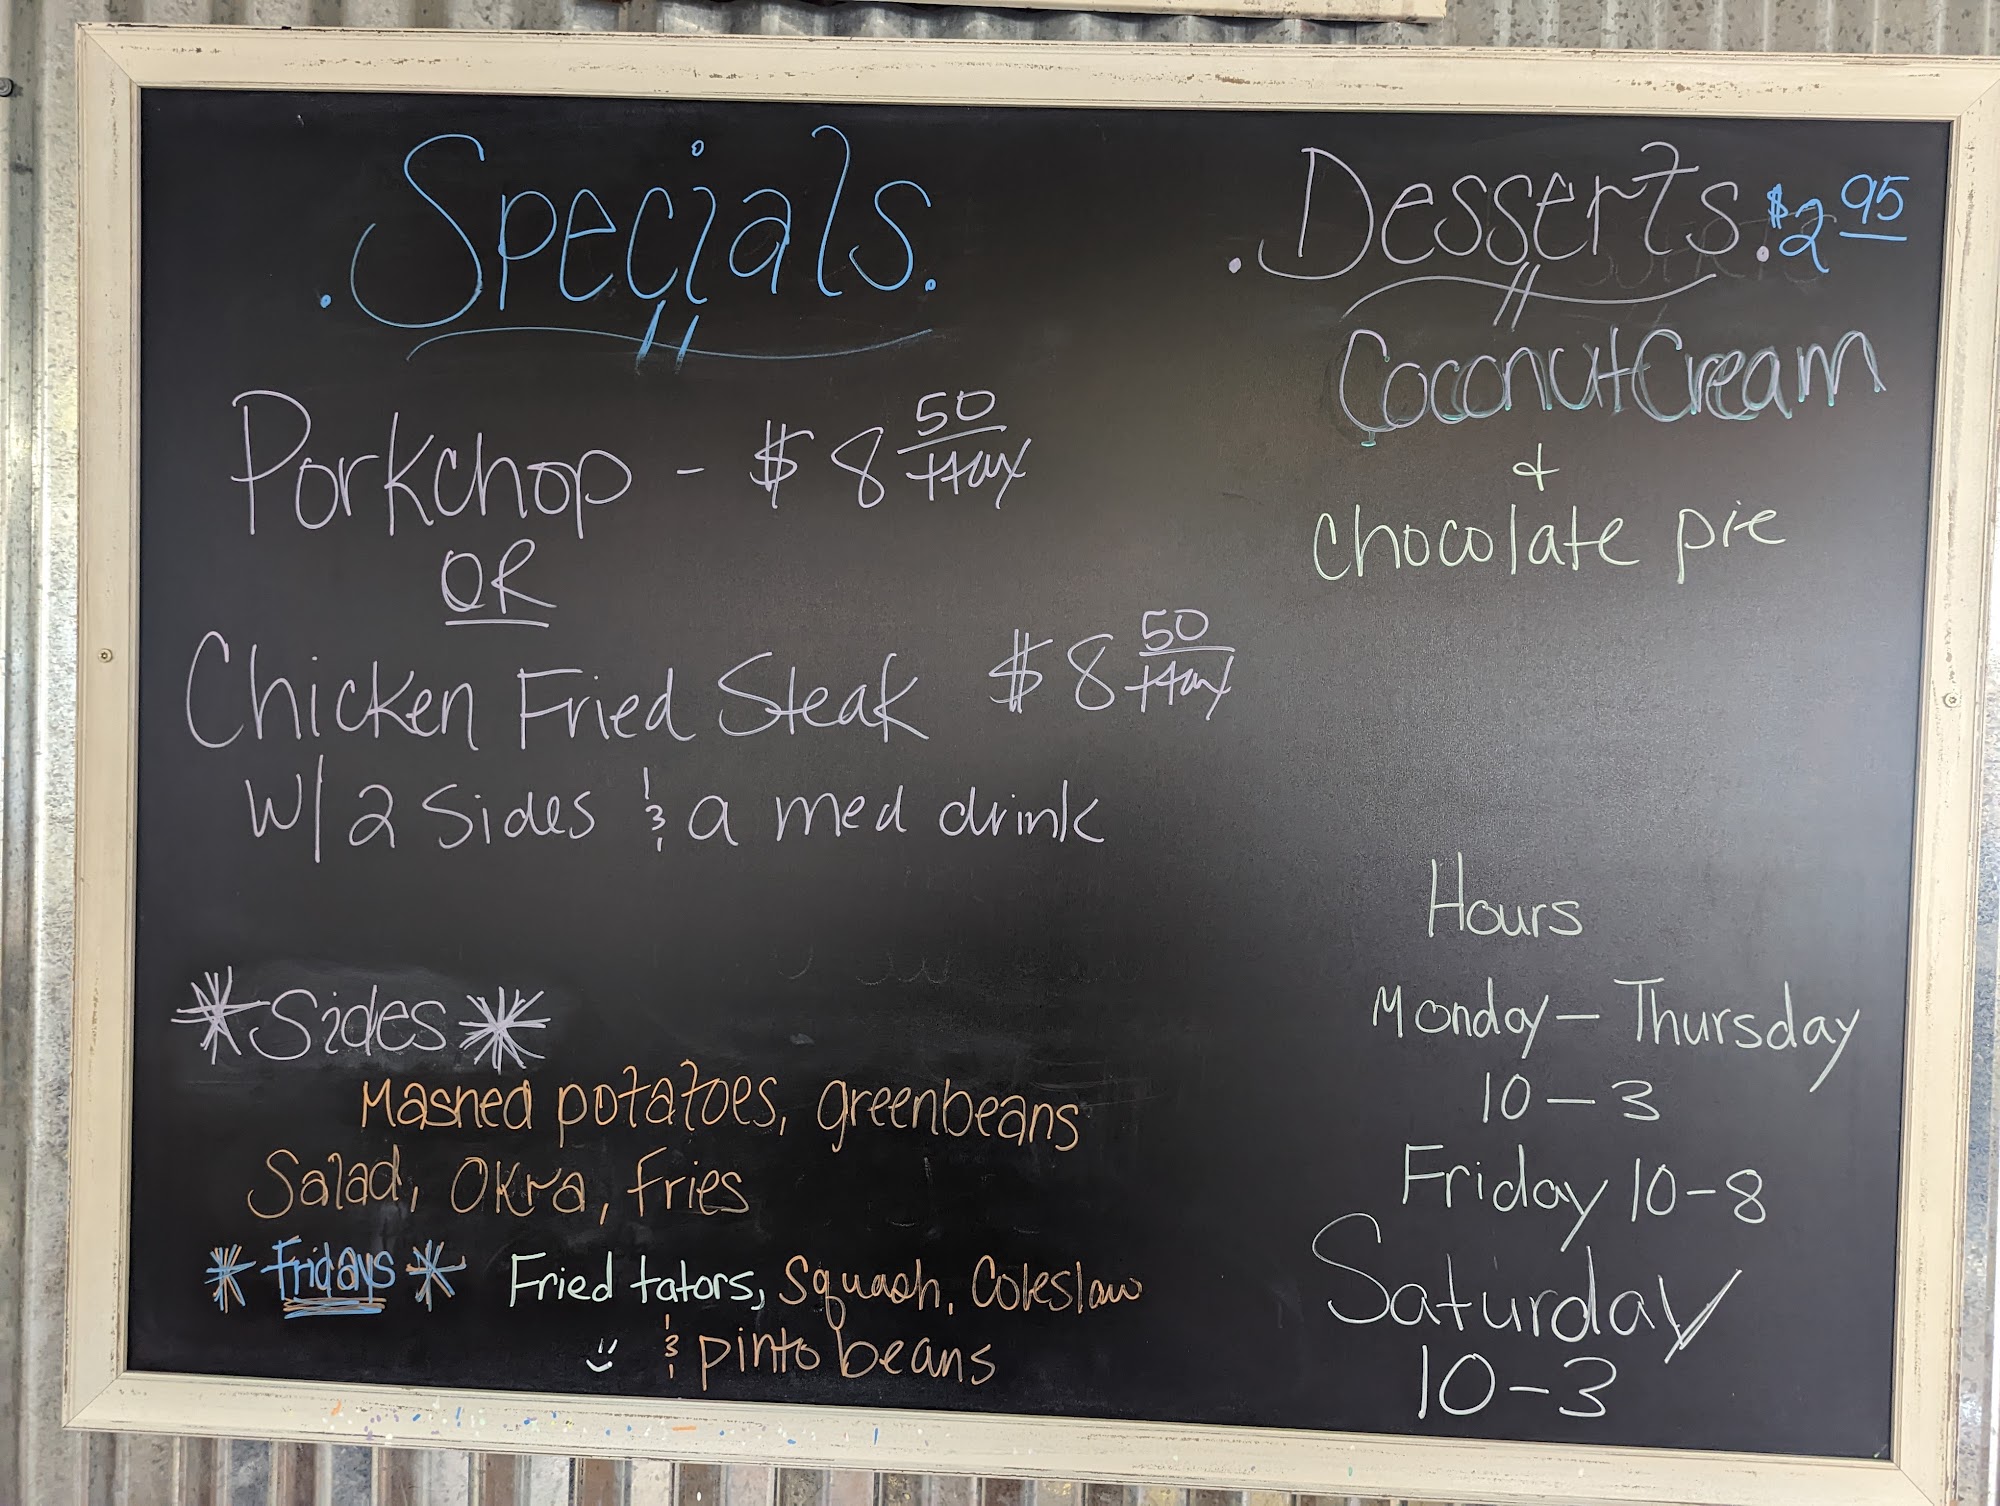 .Specials.
Porkchop - $8 50 +tax
OR
Chicken Fried Steak $8 50 +tax
W/ 2 Sides & a med drink
*Sides*
Mashed potatoes, greenbeans
Salad, Okra, Fries
*Fridays* Fried tators, Squash, Coleslaw
& pinto beans
.Desserts. $2 95
Coconut Cream
&
Chocolate pie
Hours
Monday - Thursday
10-3
Friday 10-8
Saturday
10-3